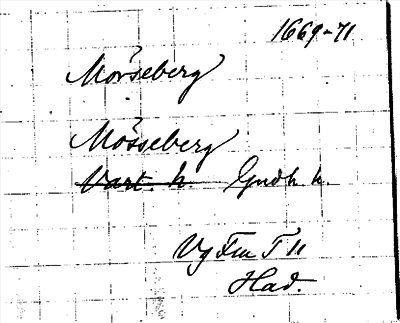 1669-71
Morseberg
Mösseberg
Vart h. Gudh. h.
Vg Fru T 11
Had.